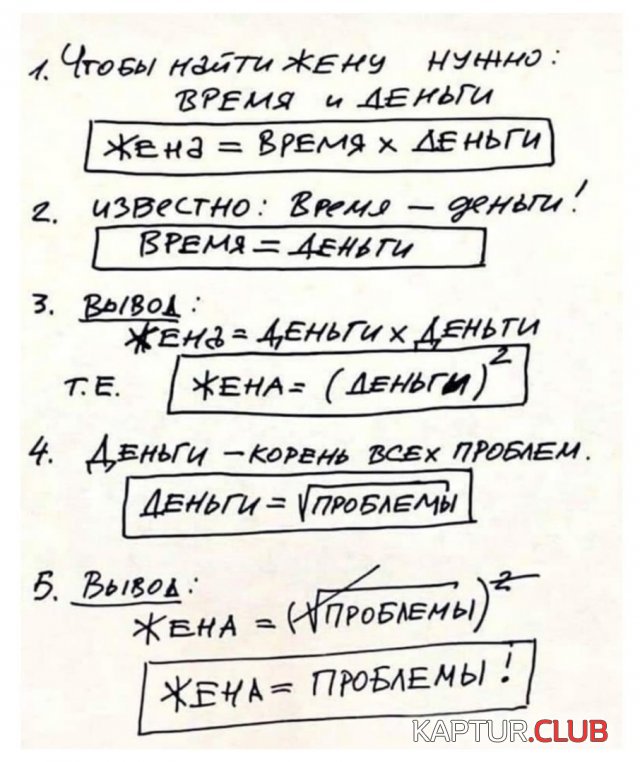 1. Чтобы найти жену нужно:
ВРЕМЯ и ДЕНЬГИ
ЖЕНА = ВРЕМЯ х ДЕНЬГИ
2. ИЗВЕСТНО: Время – деньги!
ВРЕМЯ = ДЕНЬГИ
3. ВЫВОД:
ЖЕНА = ДЕНЬГИ х ДЕНЬГИ
Т.Е. ЖЕНА = (ДЕНЬГИ)²
4. ДЕНЬГИ – КОРЕНЬ ВСЕХ ПРОБЛЕМ.
ДЕНЬГИ = √ПРОБЛЕМЫ
5. ВЫВОД:
ЖЕНА = (√ПРОБЛЕМЫ)²
ЖЕНА = ПРОБЛЕМЫ!
KAPTUR.CLUB